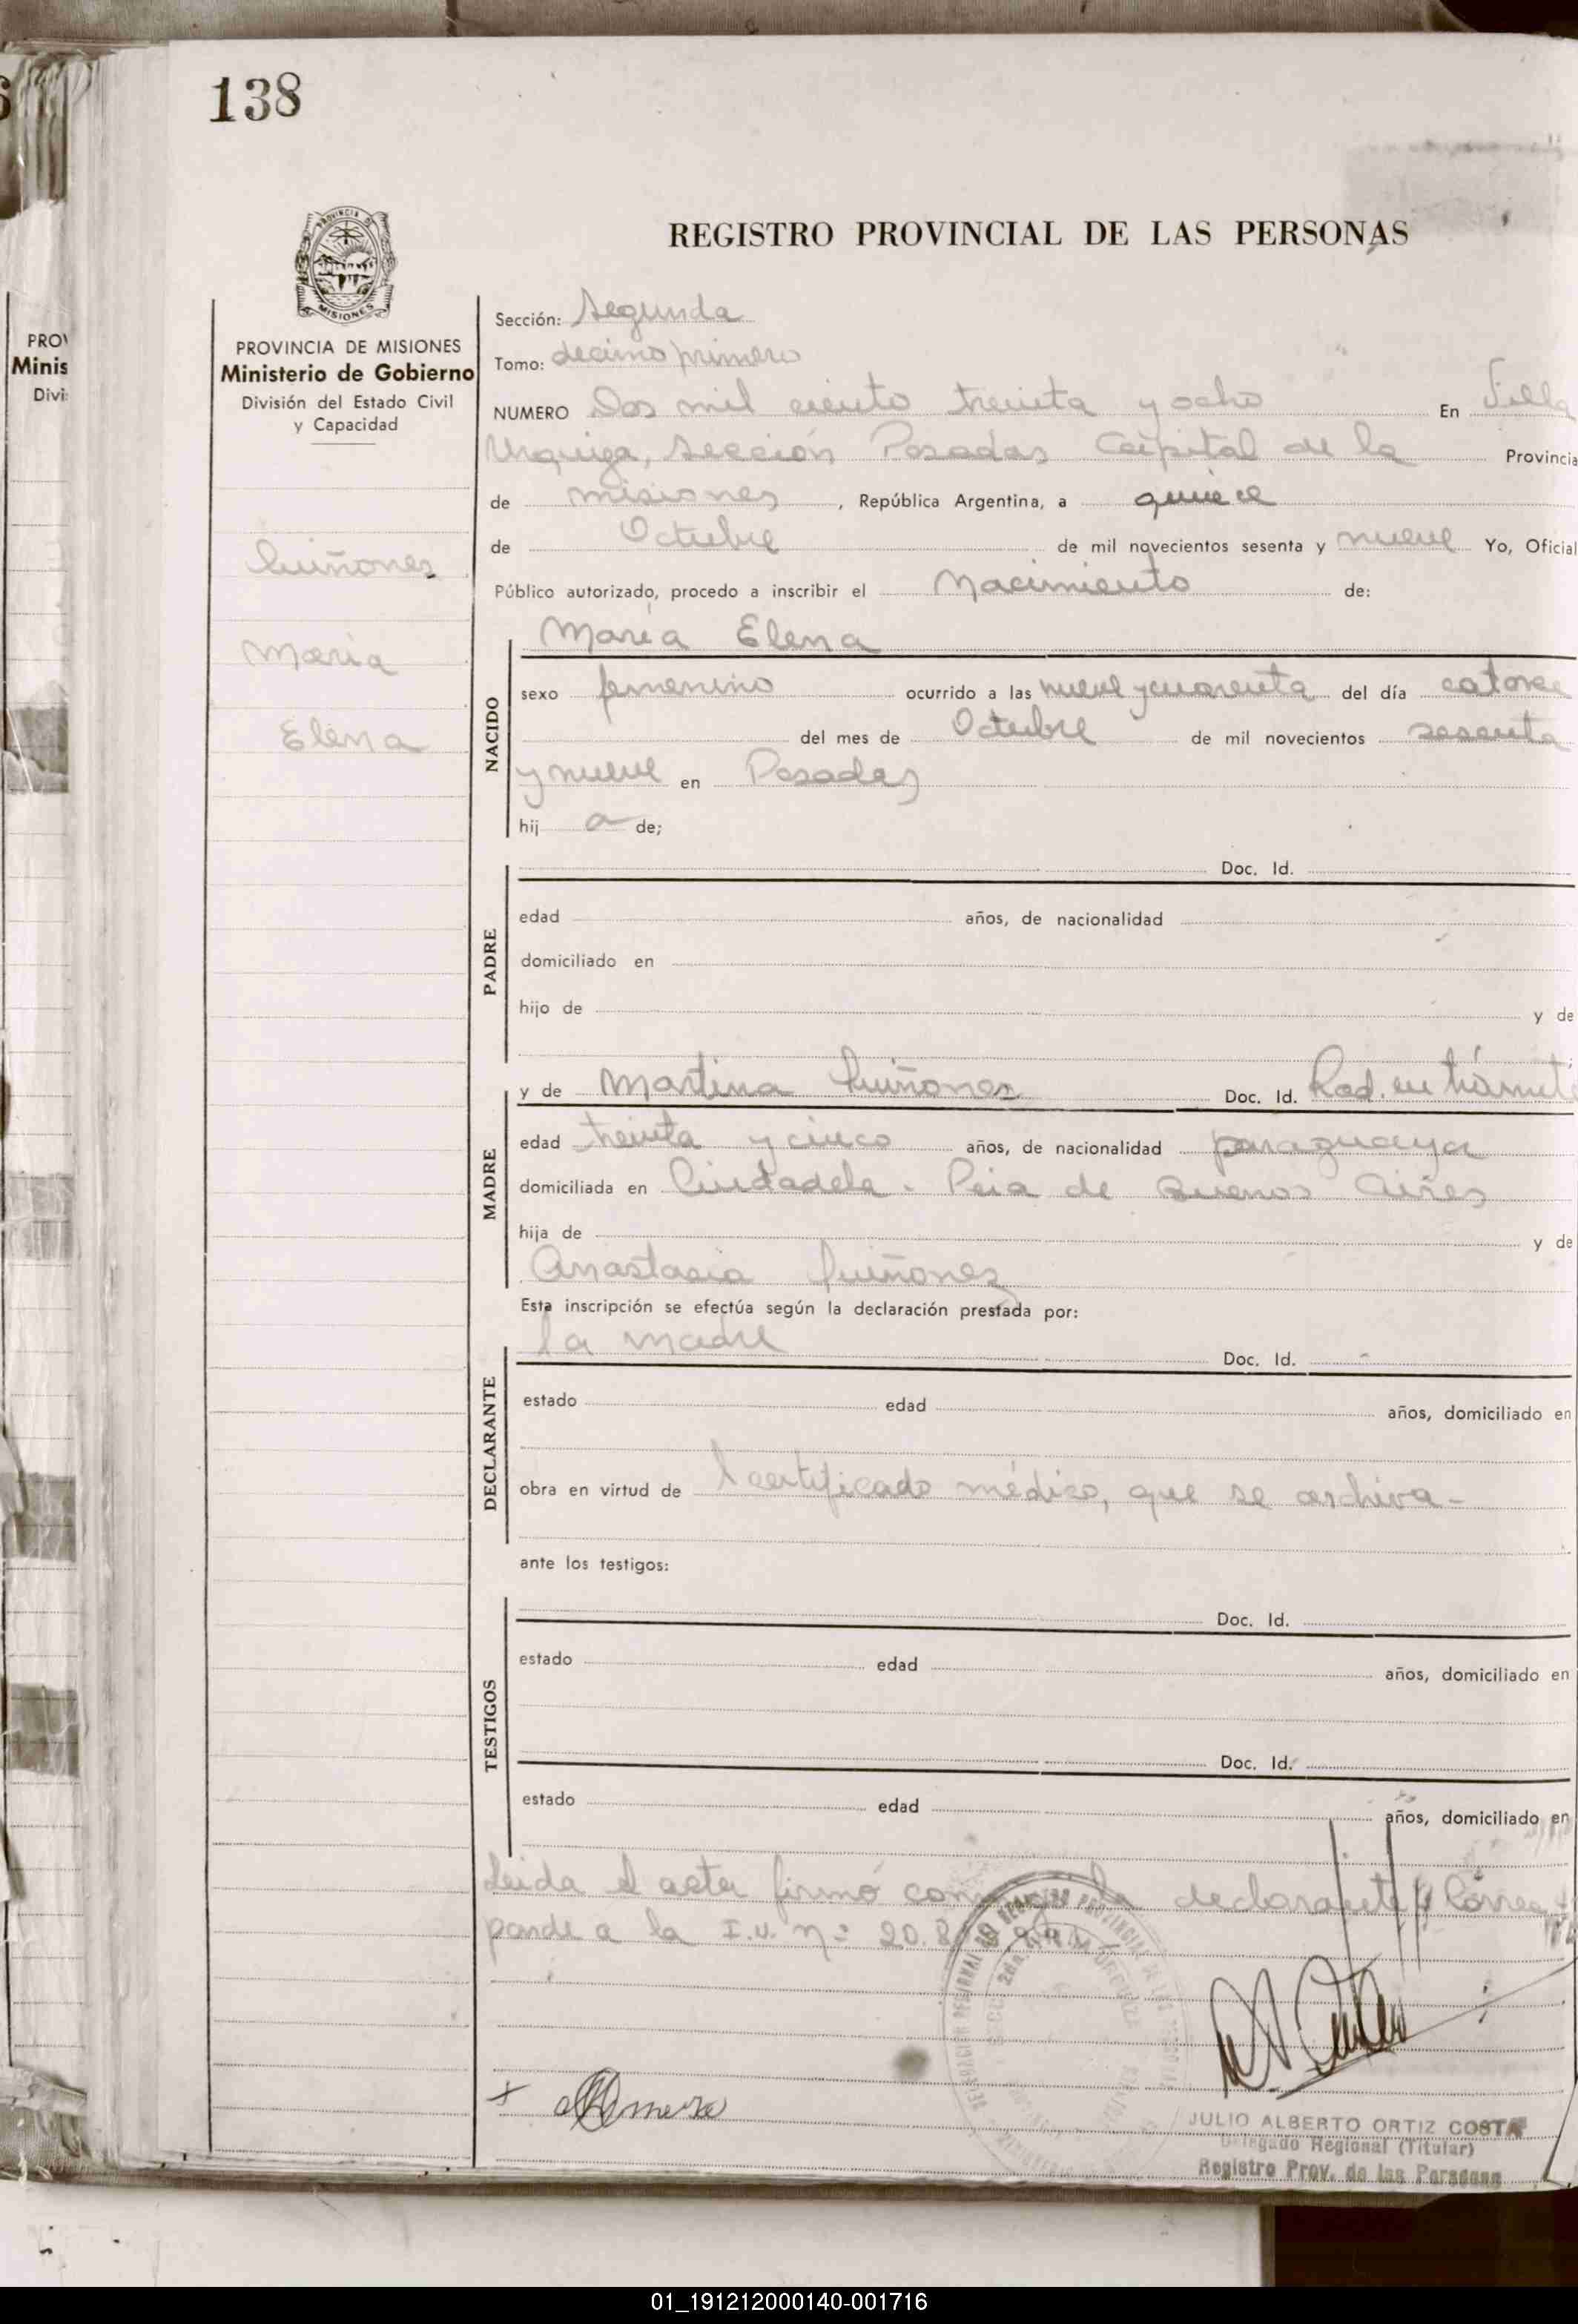 138
PROVINCIA DE
MISIONES
REGISTRO PROVINCIAL DE LAS PERSONAS
PROVINCIA DE MISIONES
Ministerio de Gobierno
División del Estado Civil
y Capacidad
Quiñonez
María
Elena
Sección: Segunda
Tomo: decimo primero
NUMERO Dos mil ciento treinta y ocho En Villa
Urquiza, Sección Posadas Capital de la Provincia
de misiones, República Argentina, a quince
de Octubre de mil novecientos sesenta y nueve Yo, Oficial
Público autorizado, procedo a inscribir el Nacimiento de:
María Elena
NACIDO
sexo femenino ocurrido a las nueve y cuarenta del día catorce
del mes de Octubre de mil novecientos sesenta
y nueve en Posadas
hij a de;
Doc. Id.
PADRE
edad años, de nacionalidad
domiciliado en
hijo de y de
y de Martina Quiñonez Doc. Id. Rad. en trámite
MADRE
edad treinta y cinco años, de nacionalidad paraguaya
domiciliada en Ciudadela - Pcia de Buenos Aires
hija de y de
Anastacia Quiñonez
Esta inscripción se efectúa según la declaración prestada por:
la madre Doc. Id.
DECLARANTE
estado edad años, domiciliado en
obra en virtud de l certificado médico, que se archiva-
ante los testigos:
Doc. Id.
TESTIGOS
estado edad años, domiciliado en
Doc. Id.
estado edad años, domiciliado en
Leida el acta firmó la declarante Corres-
ponde a la I.U. Nº
JULIO ALBERTO ORTIZ COSTA
Delegado Regional (Titular)
Registro Prov. de las Personas
PROV
Minis
Divi
01_191212000140-001716